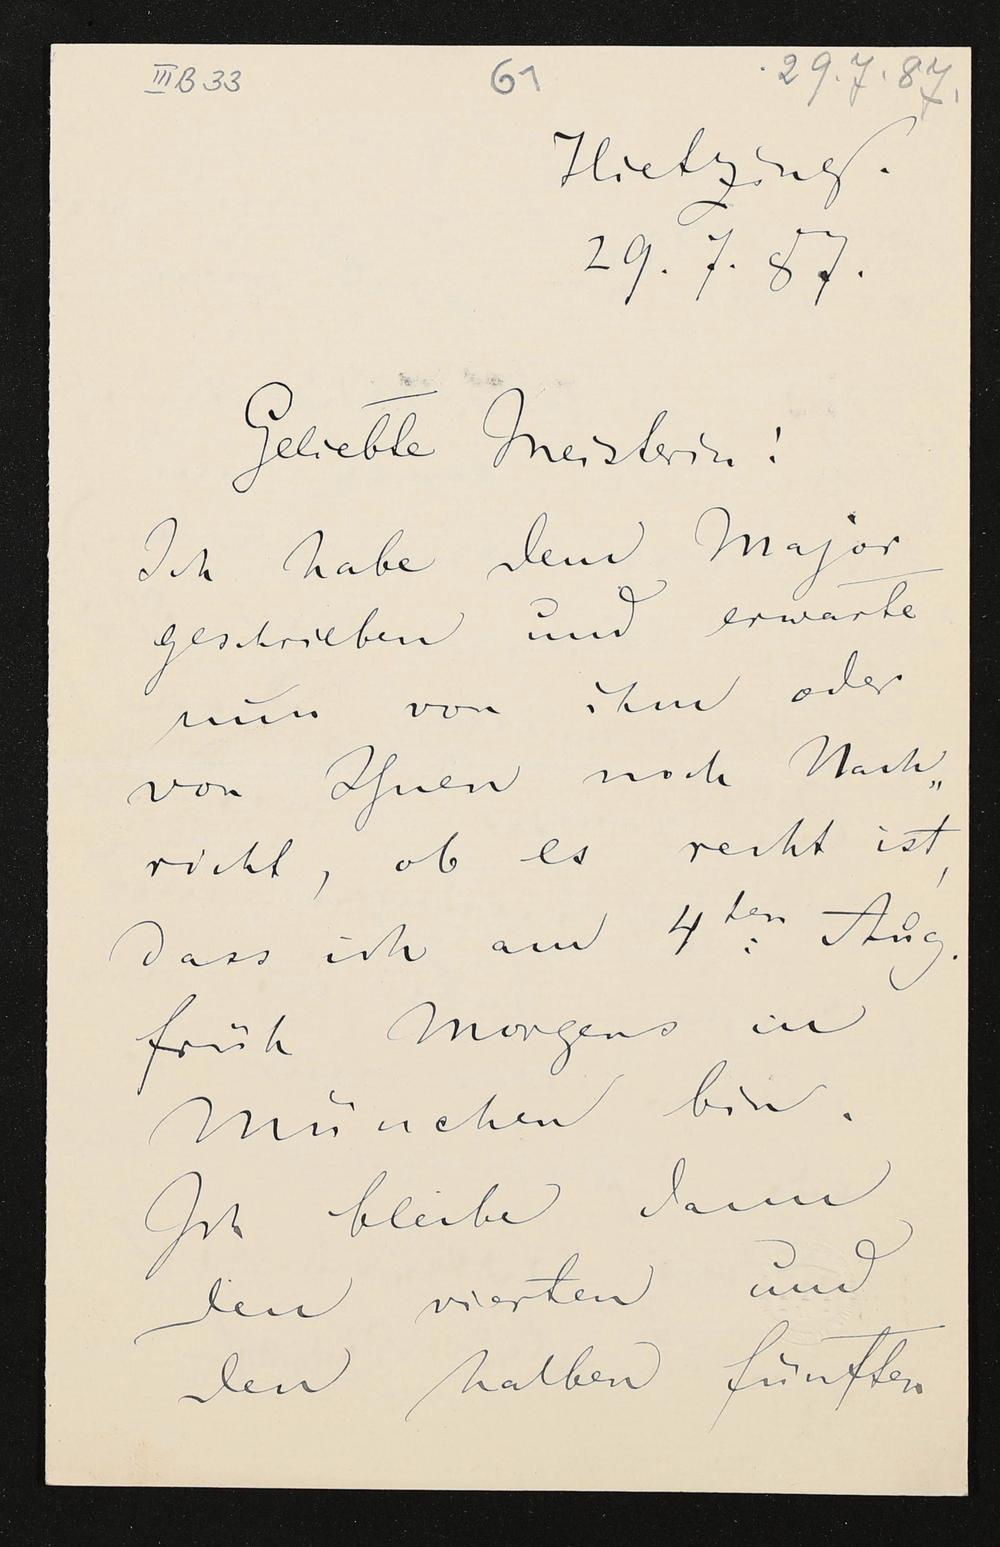 III B 33 61 29.7.87.
Hietzing.
29. 7. 87.
Geliebte Meisterin!
Ich habe dem Major
geschrieben und erwarte
nun von ihm oder
von Ihnen noch Nach„
richt, ob es recht ist,
dass ich am 4ten Aug.
früh Morgens in
München bin.
Ich bleibe dann
den vierten und
den halben fünften